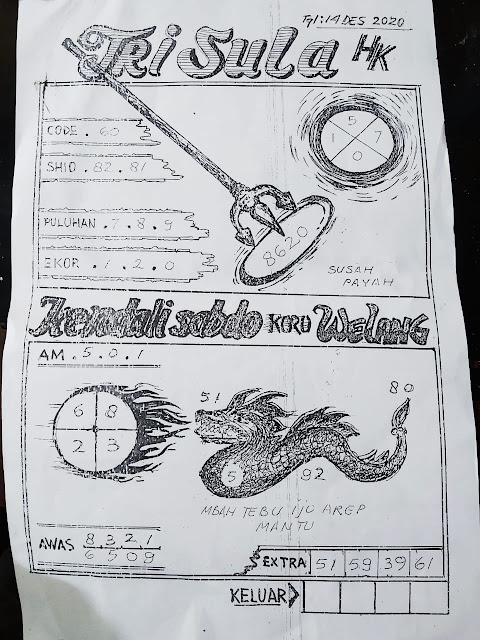 Tgl: 14 DES 2020
Tri Sula HK
CODE . 60
SHIO . 82 . 81
PULUHAN . 7 . 8 . 9
EKOR . 1 . 2 . 0
5
1 7
0
8620
SUSAH
PAYAH
Kendali sabdo KORO WELANG
AM . 5 . 0 . 1
6 8
2 3
51
80
5
92
MBAH TEBU IJO AREP
MANTU
AWAS 8 3 2 1
6 5 0 9
EXTRA 51 59 39 61
KELUAR